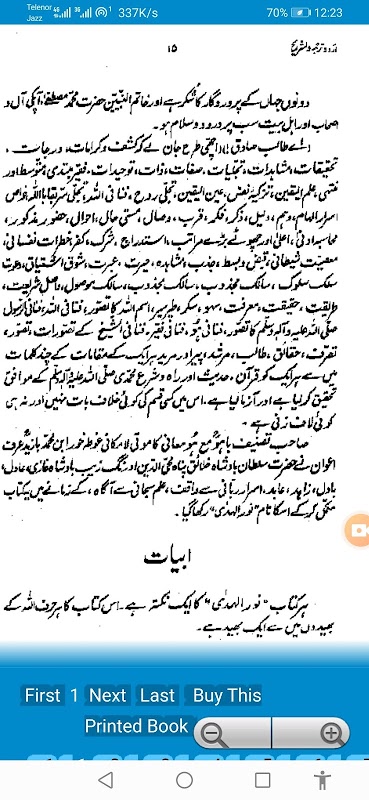 Telenor
Jazz
46
36
1
337K/s
70%
12:23
اردو ترجمہ و تشریح
۱۵
دونوں جہاں کے پروردگار کا شکر ہے اور خاتم النبیین حضرت محمد مصطفےٰ، آپکی آل و
صحاب اور اہل بیت سب پر درود و سلام ہو۔
اے طالب صادق! اچھی طرح جان لے کہ کشف و کرامات، درجات،
تحقیقات، مشاہدات، تجلیات، صفات، ذات، توحیدات، فقیر مبتدی، متوسط اور
منتہی، علم الیقین، تزکیۂ نفس، عین الیقین، تجلی روح، فنا فی اللہ، تجلی سر، بقا باللہ، خواص
اسرار، الہام، وہم، دلیل، ذکر، فکر، قرب، وصال، مستی حال، احوال، حضور مذکور،
محاسبہ دانی، اعلیٰ اور چھوٹے بڑے مراتب، استدراج، شرک، کفر، خطرات نفسانی،
معصیت شیطانی، قبض و بسط، جذب، مشاہدہ، حیرت، عبرت، شوق، اشتیاق، دعوت
سلک سلوک، سالک مجذوب، مجذوب سالک، محبوب، سالک موصول، واصل، شریعت،
طریقت، حقیقت، معرفت، سہو، سکر، طیر سیر، اسم اللہ کا تصور، فنا فی اللہ، فنا فی الرسول
صلی اللہ علیہ وآلہ وسلم کا تصور، فنا فی ہُو، فنا فی فقیر، فنا فی الشیخ کے تصورات، تصور،
تصرف، حقائق، طالب، مرشد، پیر اور مرید ہر ایک کے مقامات کے چند کلمات
میں سے ہر ایک کو قرآن، حدیث اور راہ و شرع محمدی صلی اللہ علیہ وآلہ وسلم کے موافق
تحقیق کر لیا ہے اور آزما لیا ہے۔ اس میں کسی قسم کی کوئی خلاف بات نہیں اور نہ ہی
کوئی لاف زنی ہے۔
صاحب تصنیف باھو مع ھو معانی کا موتی لامکانی غوطہ خور ابن محمد بازید عرف
اعوان نے حضرت سلطان بادشاہ خلائق پناہ محی الدین اورنگ زیب بادشاہ غازی، عادل،
باذل، زاہد، عابد، اسرار ربانی سے واقف، علم سبحانی سے آگاہ، کے زمانے میں یہ کتاب
مکمل کر کے اسکا نام "نور الہدٰی" رکھا گیا۔
ابیات
ہر کتاب "نور الہدٰی" کا ایک نکتہ ہے۔ اس کتاب کا ہر حرف اللہ کے
بھیدوں میں سے ایک بھید ہے۔
First 1 Next Last Buy This
Printed Book